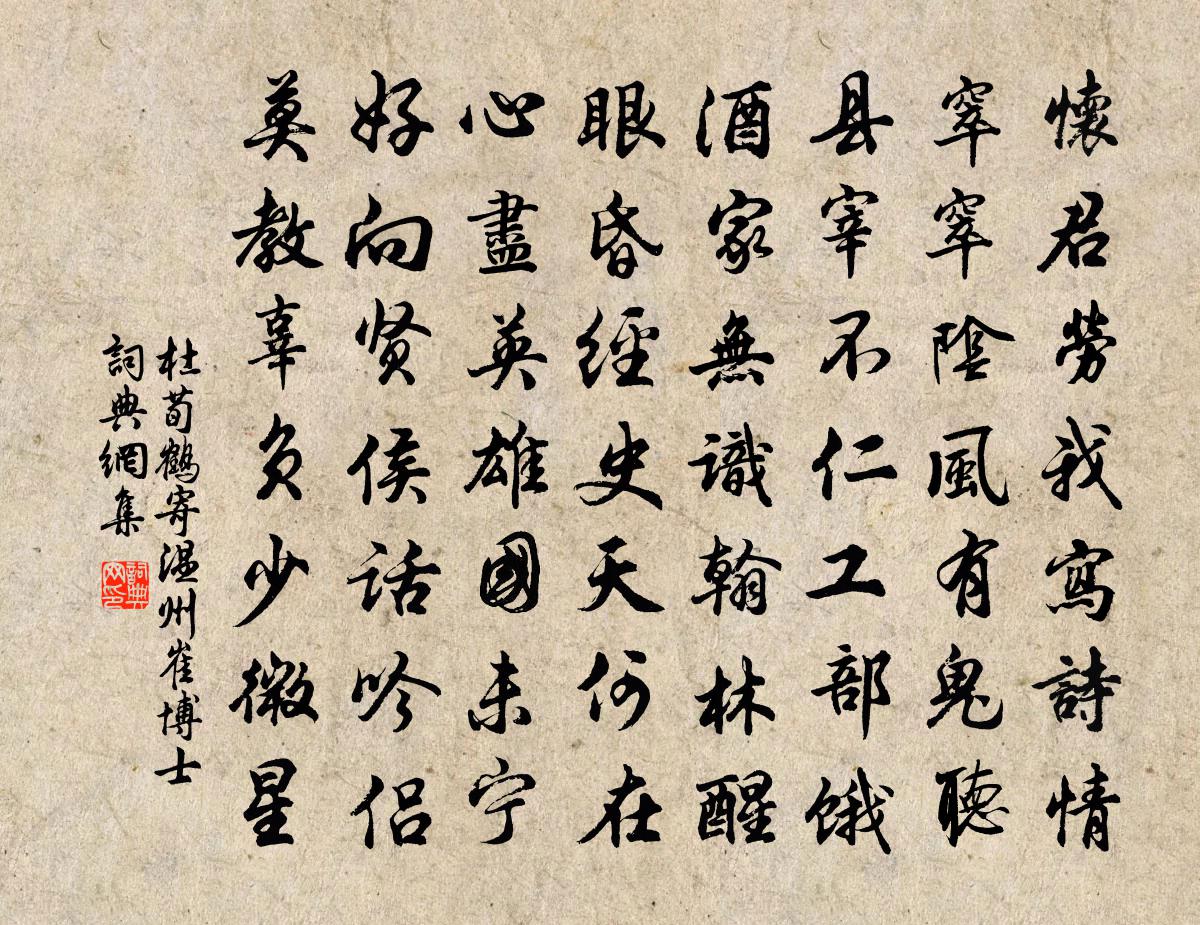 懷君勞我寫詩情
窣窣陰風有鬼聽
县宰不仁工部餓
酒家無識翰林醒
眼昏經史天何在
心盡英雄國未宁
好向贤侯話吟侣
莫教辜负少微星
杜荀鶴寄温州崔博士
詞典網集
詞典网印